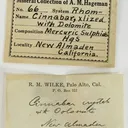 Mineral Collection of A. M. Hageman
No. 66 System Rhom-
Cinnabar, xlized
with Dolomite
Composition Mercuric Sulphide
HgS
Locality New Almaden
California.
R. M. WILKE, Palo Alto, Cal.
P. O. Box
Cinnabar crystals
Dolomite
New Almaden